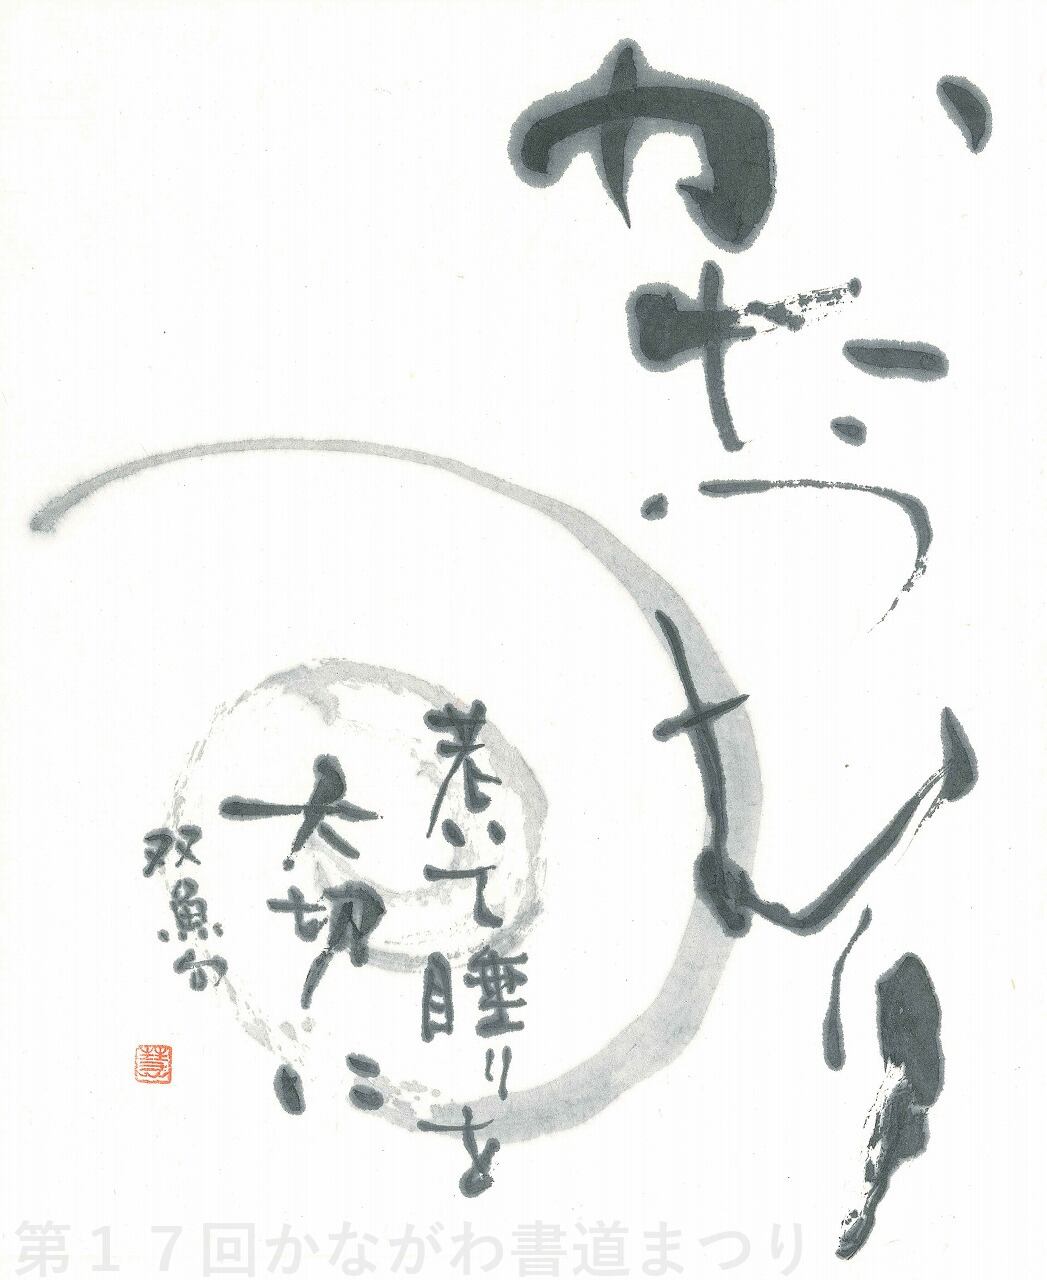 かたつむり
老いて睡りを
大切に
双魚句
慧
第１７回かながわ書道まつり